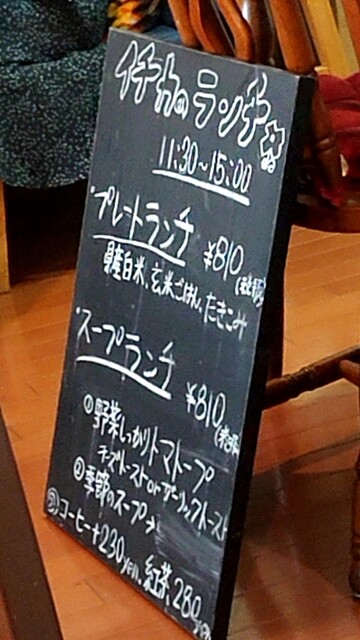 イチカのランチ
11:30~15:00
・プレートランチ ¥810
県産白米、玄米ごはん、たきこみ
・スープランチ ¥810
①野菜しっかりトマトープ
チーズトーストorガーリックトースト
②季節のスープ
③コーヒー+230yen. 紅茶280yen